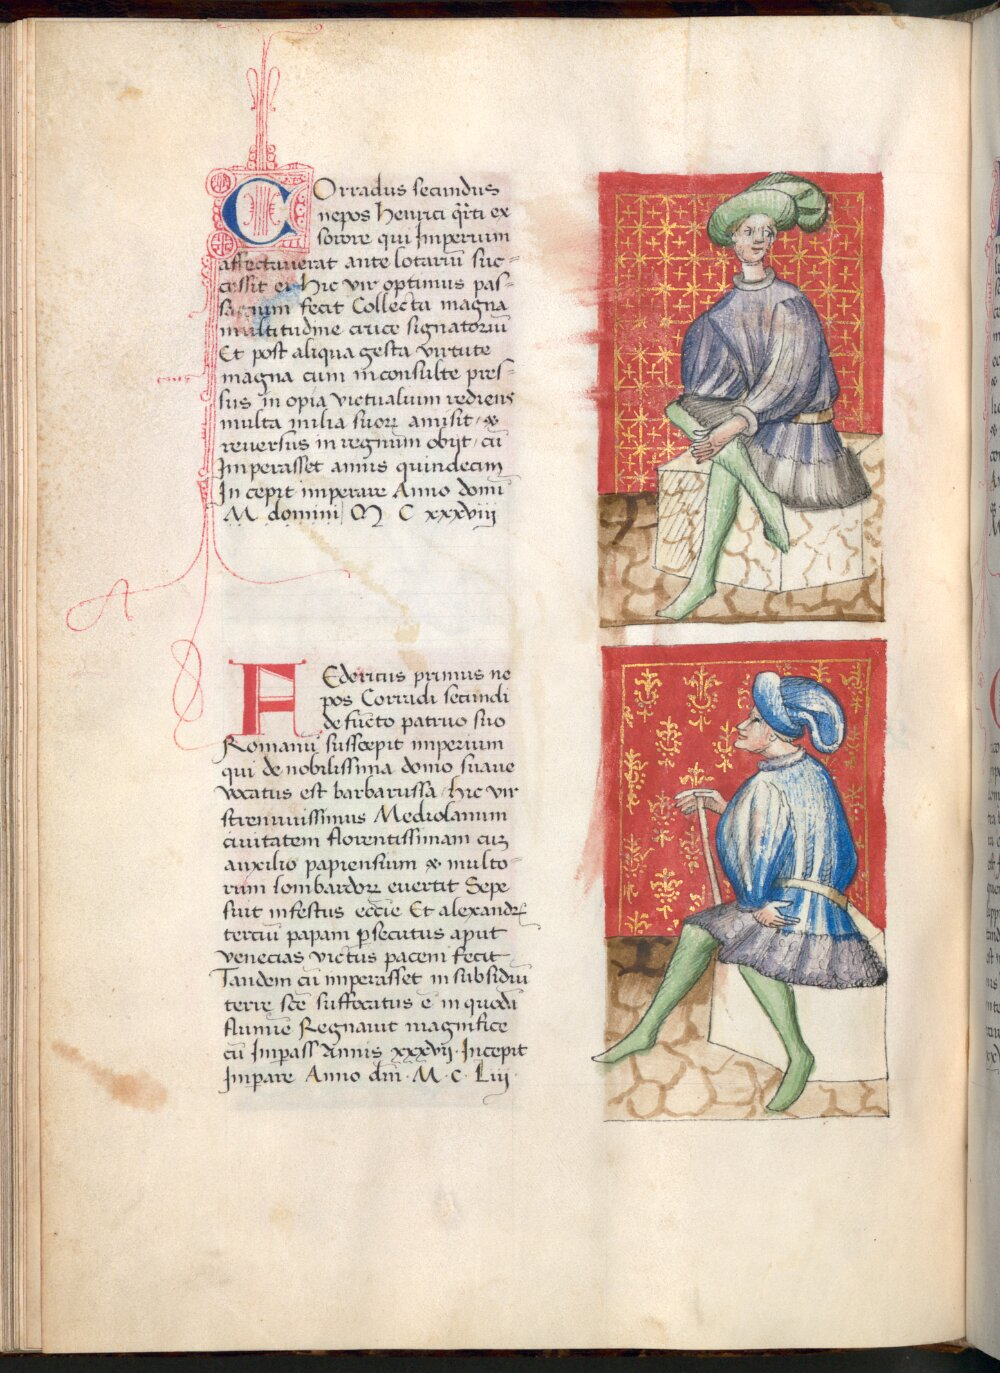 Corradus secundus
nepos henrici qrti ex
sorore qui Imperium
affectuuerat ante lotariū suc=
cessit ei hic vir optimus pas=
sagium fecit Collecta magna
multitudine cruce signatoriū
Et post aliqua gesta virtute
magna cum inconsulte pres=
sus in opia victualium rediens
multa milia suorꝝ amisit &
reuersus in regnum obijt cū
Imperasset annis quindecim
In cepit imperare Anno domī
M domini M C xxxviii
Federicus primus ne
pos Corradi secundi
defūcto patruo suo
Romanū suscepit imperium
qui de nobilissima domo suaue
vocatus est barbarussa hic vir
strenuuissimus Mediolanum
ciuitatem florentissimam cuz
auxilio papiensium & multo=
rum lombardorꝝ euertit Sepe
fuit infestus ecc̄ie Et alexandꝝ
terciū papam psecutus aput
venecias victus pacem fecit
Tandem cū imperasset in subsidiū
terre sc̄e suffocatus ē in quodā
flumīe Regnauit magnifice
cū Impass Annis xxxvii Incepit
Impare Anno dn̄i M C Liii